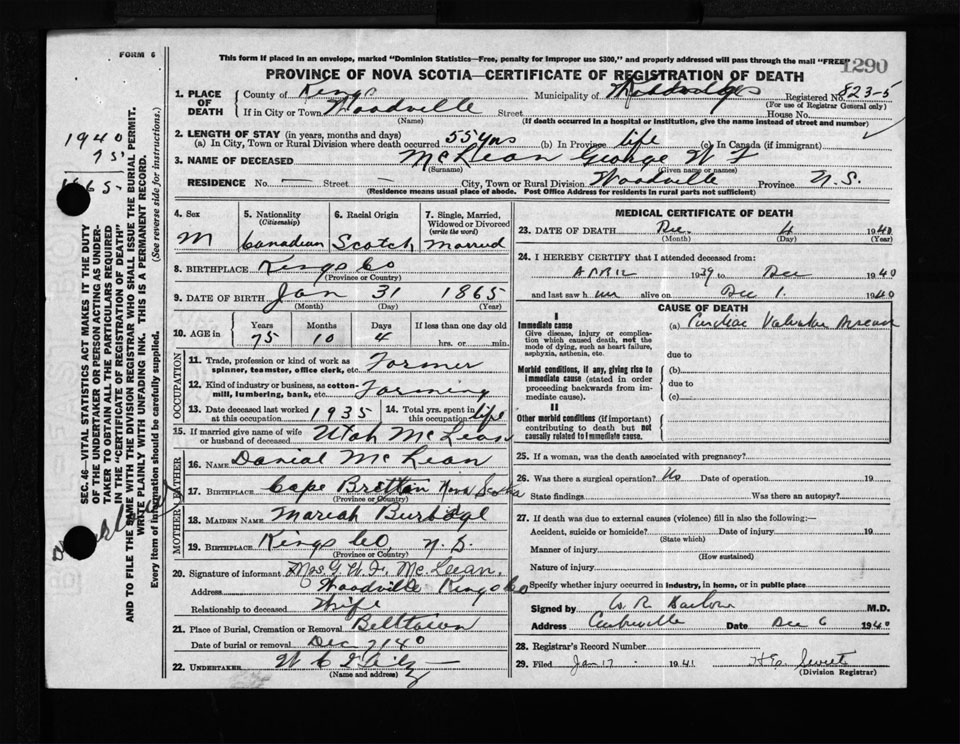 FORM 6
This form if placed in an envelope, marked "Dominion Statistics—Free, penalty for improper use $300," and properly addressed will pass through the mail "FREE"
1290
PROVINCE OF NOVA SCOTIA—CERTIFICATE OF REGISTRATION OF DEATH
1. PLACE OF DEATH
County of Kings Municipality of Registered No. 823-5
(For use of Registrar General only)
If in City or Town Woodville Street House No.
(Name) (If death occurred in a hospital or institution, give the name instead of street and number)
2. LENGTH OF STAY (in years, months and days)
(a) In City, Town or Rural Division where death occurred 55 yrs (b) In Province life (c) In Canada (if immigrant)
3. NAME OF DECEASED McLean George W F
(Surname) (Given name or names)
RESIDENCE No. — Street — City, Town or Rural Division Woodville Province N.S.
(Residence means usual place of abode. Post Office Address for residents in rural parts not sufficient)
4. Sex
M
5. Nationality
(Citizenship)
Canadian
6. Racial Origin
Scotch
7. Single, Married, Widowed or Divorced
(write the word)
Married
8. BIRTHPLACE Kings Co
(Province or Country)
9. DATE OF BIRTH Jan 31 1865
(Month) (Day) (Year)
10. AGE in
Years Months Days If less than one day old
75 10 4 hrs. or min.
OCCUPATION
11. Trade, profession or kind of work as spinner, teamster, office clerk, etc. Farmer
12. Kind of industry or business, as cotton-mill, lumbering, bank, etc. Farming
13. Date deceased last worked at this occupation 1935
14. Total yrs. spent in this occupation life
15. If married give name of wife or husband of deceased Utah McLean
FATHER
16. NAME Danial McLean
17. BIRTHPLACE Cape Bretton Nova Scotia
(Province or Country)
MOTHER
18. MAIDEN NAME Mariah Burbidge
19. BIRTHPLACE Kings Co, N.S.
(Province or Country)
20. Signature of informant Mrs. G. W. F. McLean.
Address Woodville Kings Co
Relationship to deceased Wife
21. Place of Burial, Cremation or Removal Belltown
Date of burial or removal Dec 7/40
22. UNDERTAKER W C
(Name and address)
MEDICAL CERTIFICATE OF DEATH
23. DATE OF DEATH Dec. 4 1940
(Month) (Day) (Year)
24. I HEREBY CERTIFY that I attended deceased from:
APRIL 1939 to Dec 1940
and last saw him alive on Dec 1. 1940
CAUSE OF DEATH
I
Immediate cause
Give disease, injury or complication which caused death, not the mode of dying, such as heart failure, asphyxia, asthenia, etc.
(a) Cardiac Valvular Disease
due to
Morbid conditions, if any, giving rise to immediate cause (stated in order proceeding backwards from immediate cause).
(b)
due to
(c)
II
Other morbid conditions (if important) contributing to death but not causally related to immediate cause.
25. If a woman, was the death associated with pregnancy?
26. Was there a surgical operation? No Date of operation 19
State findings Was there an autopsy?
27. If death was due to external causes (violence) fill in also the following:—
Accident, suicide or homicide? Date of injury 19
(State which)
Manner of injury
(How sustained)
Nature of injury
Specify whether injury occurred in industry, in home, or in public place
Signed by M.D.
Address Centreville Date Dec 6 1940
28. Registrar's Record Number
29. Filed Jan 17 1941
(Division Registrar)
1940
75
1865
SEC. 46—VITAL STATISTICS ACT MAKES IT THE DUTY
OF THE UNDERTAKER OR PERSON ACTING AS UNDER-
TAKER TO OBTAIN ALL THE PARTICULARS REQUIRED
IN THE "CERTIFICATE OF REGISTRATION OF DEATH"
AND TO FILE THE SAME WITH THE DIVISION REGISTRAR WHO SHALL ISSUE THE BURIAL PERMIT.
WRITE PLAINLY WITH UNFADING INK. THIS IS A PERMANENT RECORD.
Every item of information should be carefully supplied. (See reverse side for instructions.)